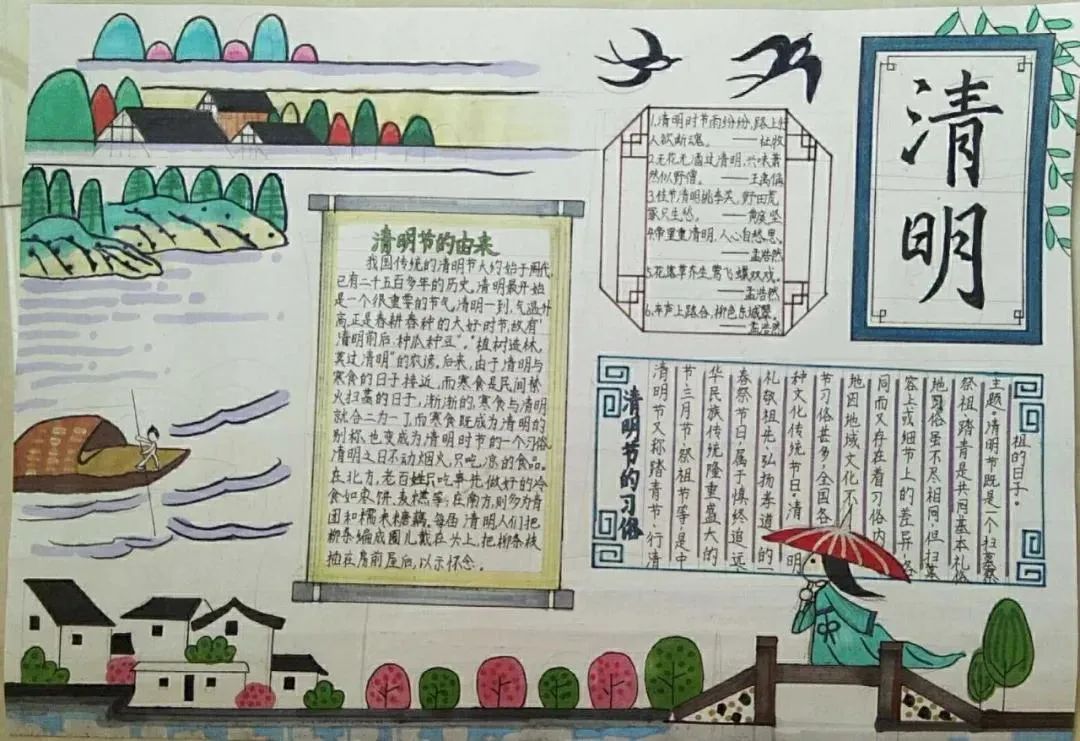 清明
清明节的由来
我国传统的清明节大约始于周代,
已有二十五百多年的历史。清明最开始
是一个很重要的节气,清明一到,气温升
高,正是春耕春种的大好时节,故有"
清明前后,种瓜种豆"。"植树造林,
莫过清明"的农谚。后来,由于清明与
寒食的日子接近,而寒食是民间禁
火扫墓的日子,渐渐的,寒食与清明
就合二为一了,而寒食既成为清明的
别称,也变成为清明时节的一个习俗,
清明之日不动烟火,只吃凉的食品。
在北方,老百姓只吃事先做好的冷
食如枣饼、麦糕等;在南方,则多为青
团和糯米糖藕。每届清明人们把
柳条编成圈儿戴在头上,把柳条枝
插在房前屋后,以示怀念。
1.清明时节雨纷纷,路上行
人欲断魂。——杜牧
2.无花无酒过清明,兴味萧
然似野僧。——王禹偁
3.佳节清明桃李笑,野田荒
冢只生愁。——黄庭坚
4.帝里重清明,人心自愁思。
——孟浩然
5.花落草齐生,莺飞蝶双戏。
——孟浩然
6.车声上路合,柳色东城翠。
——孟浩然
清明节的习俗
清明节又称踏青节、行清
节、三月节、祭祖节等,是中
华民族传统隆重盛大的
春祭节日,属于慎终追远、
礼敬祖先、弘扬孝道的一
种文化传统节日。清明
节习俗甚多,全国各
地因地域文化不
同而又存在着习俗内
容上或细节上的差异,各
地习俗虽不尽相同,但扫墓
祭祖、踏青是共同基本礼俗
主题。清明节既是一个扫墓祭
祖的日子。